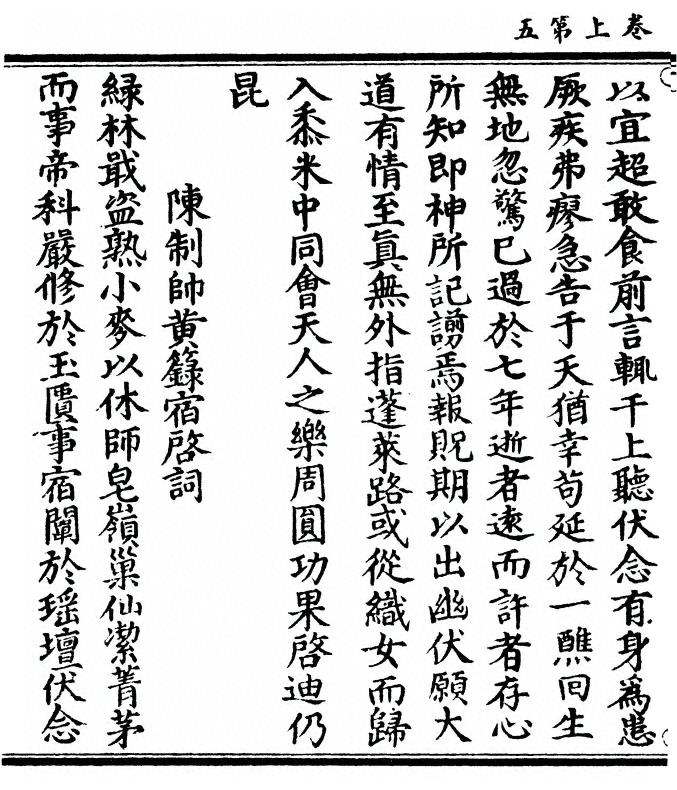 卷上第五
以宜超敢食前言輒干上聽伏念有身爲患
厥疾弗瘳急告于天猶幸苟延於一醮回生
無地忽驚已過於七年逝者遠而許者存心
所知即神所記謭焉報貺期以出幽伏願大
道有情至眞無外指蓬萊路或從織女而歸
入黍米中同會天人之樂周圓功果啓迪仍
昆
陳制帥黄籙宿啓詞
緑林戢盜熟小麥以休師皂嶺巢仙潔菁茅
而事帝科嚴修於玉匱事宿闡於瑶壇伏念